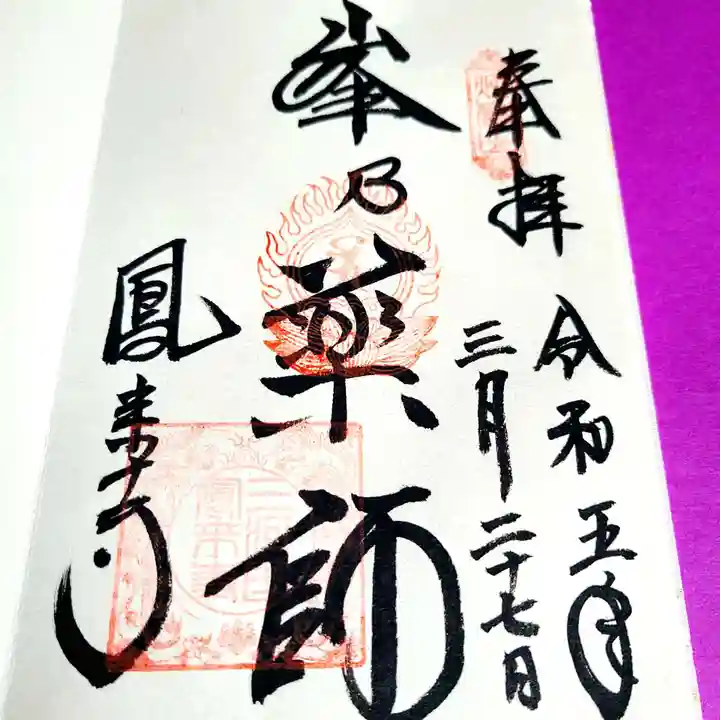 奉拝
令和五年
三月二十七日
峯乃薬師
鳳来寺